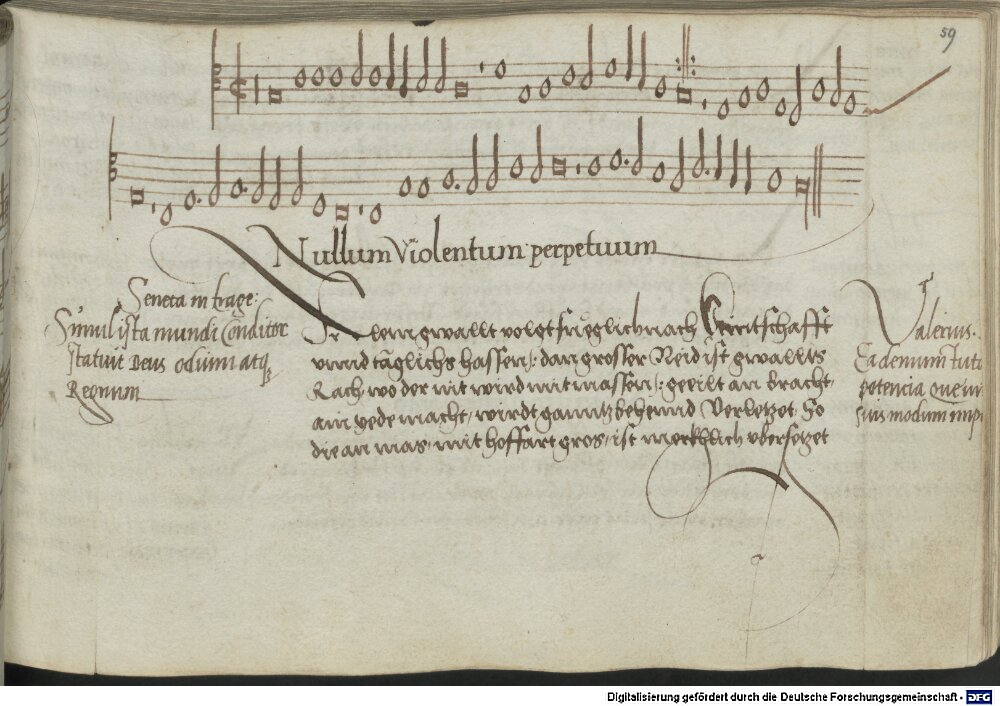 59
Nullum Violentum perpetuum
Seneca in trage:
Simul ista mundi Conditor
statuit Deus odium atq
Regnum
lenngwallt volgt füglich nach Herrtschafft
vnnd täglichs hassen /: dan grosser Neid ist gwallts
Rach, wo der nit wird mit massen /: geeilt an bracht,
ain yede macht, wirdt ganntz behennd Verletzet. So
die an mas, mit hoffart gros, ist merkhlich vbersetzet
Valerius.
Ea demum tuta
potencia que vi
suis modum impo
Digitalisierung gefördert durch die Deutsche Forschungsgemeinschaft - DFG